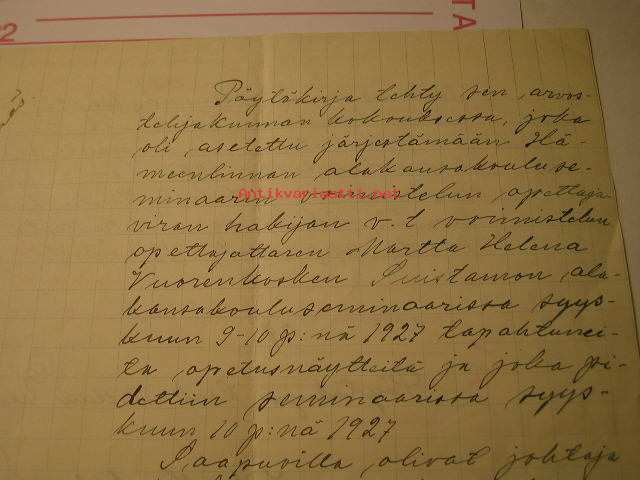 TA
2
Pöytäkirja tehty sen arvos-
telijakunnan kokouksessa, joka
oli asetettu järjestämään Hä-
meenlinnan alakansakouluse-
minaarin voimistelun opettaja-
Antikvariaatti.net
viran hakijan v. t voimistelun
opettajattaren Martta Helena
Vuorenkosken Suistamon ala-
kansakouluseminaarissa syys-
kuun 9-10 p:nä 1927 tapahtunei-
ta opetusnäytteitä ja joka pi-
dettiin seminaarissa syys-
kuun 10 p:nä 1927
Saapuvilla olivat johtaja